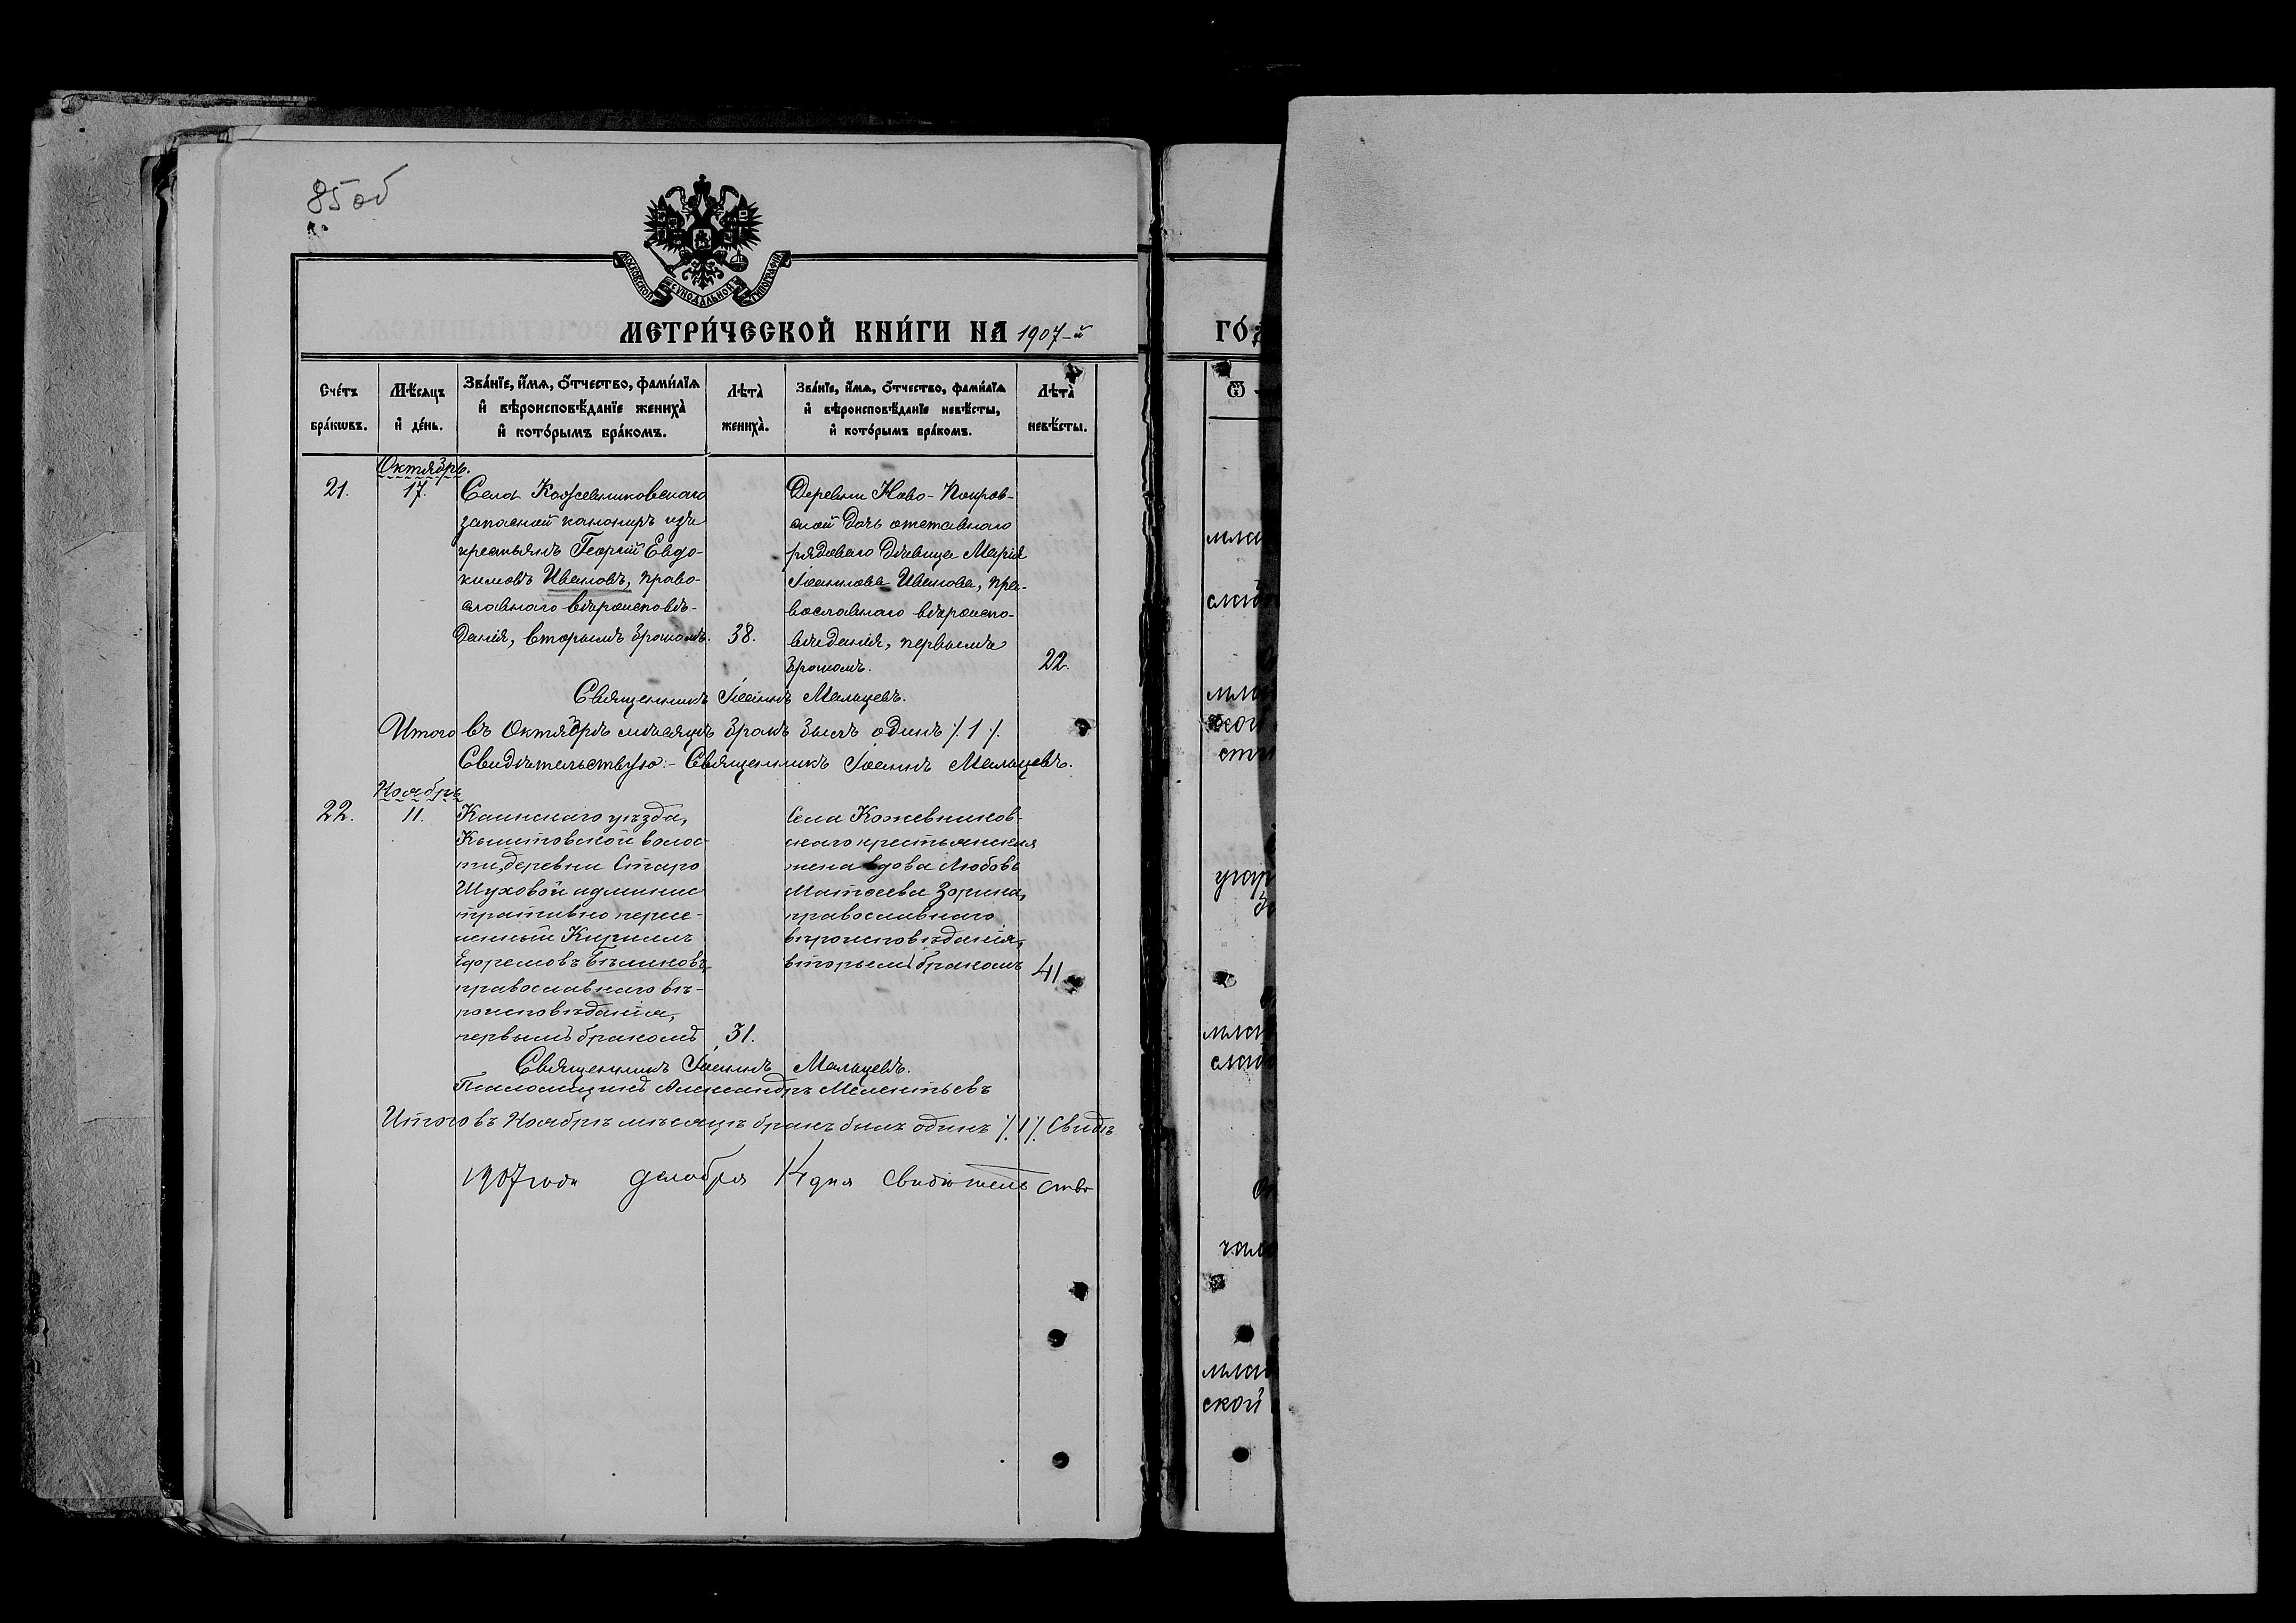 85 об
МОСКОВСКОЙ СѴНОДАЛЬНОЙ ТИПОГРАФІИ
МЕТРИ́ЧЕСКОЙ КНИ́ГИ НА 1907-й
ГО́
Сче́тъ бра́кѡвъ.
Мѣ́сяцъ и҆ де́нь.
Зва́нїе, и҆́мѧ, ѻ҆́тчество, фами́лїѧ и҆ вѣроисповѣ́данїе жениха̀ и҆ кото́рымъ бра́комъ.
Лѣта̀ жениха̀.
Зва́нїе, и҆́мѧ, ѻ҆́тчество, фами́лїѧ и҆ вѣроисповѣ́данїе невѣ́сты, и҆ кото́рымъ бра́комъ.
Лѣта̀ невѣ́сты.
Октябрь.
21.
17.
Села Кожевниковскаго
запасной канониръ изъ
крестьянъ Георгій Евдо-
кимовъ Ивановъ, право-
славнаго вѣроисповѣ-
данія, вторымъ бракомъ.
38.
Деревни Ново-Покров-
ской дочь отставнаго
рядоваго дѣвица Марія
Іоаннова Иванова, пра-
вославнаго вѣроиспо-
вѣданія, первымъ
бракомъ.
22.
Священникъ Іоаннъ Мальцевъ.
Итого въ Октябрѣ мѣсяцѣ бракъ былъ одинъ ٪ 1 ٪
Свидѣтельствую:- Священникъ Іоаннъ Мальцевъ.
Ноябрь
22.
11.
Каинскаго уѣзда,
Кыштовской волос-
ти, деревни Старо
Шуховой админис
тративно пересе-
ленный Кириллъ
Ефремовъ Бѣликовъ,
православнаго вѣ-
роисповѣданія,
первымъ бракомъ
31.
Села Кожевников-
скаго крестьянская
жена вдова Любовь
Матѳеева Зорина,
православнаго
вѣроисповѣданія,
вторымъ бракомъ
41
Священникъ Іоаннъ Мальцевъ.
Псаломщикъ Александръ Мелентьевъ
Итого въ Ноябрѣ мѣсяцѣ бракъ былъ одинъ ٪ 1 ٪ Свидѣ
1907 года декабря 14 дня свидѣтельство